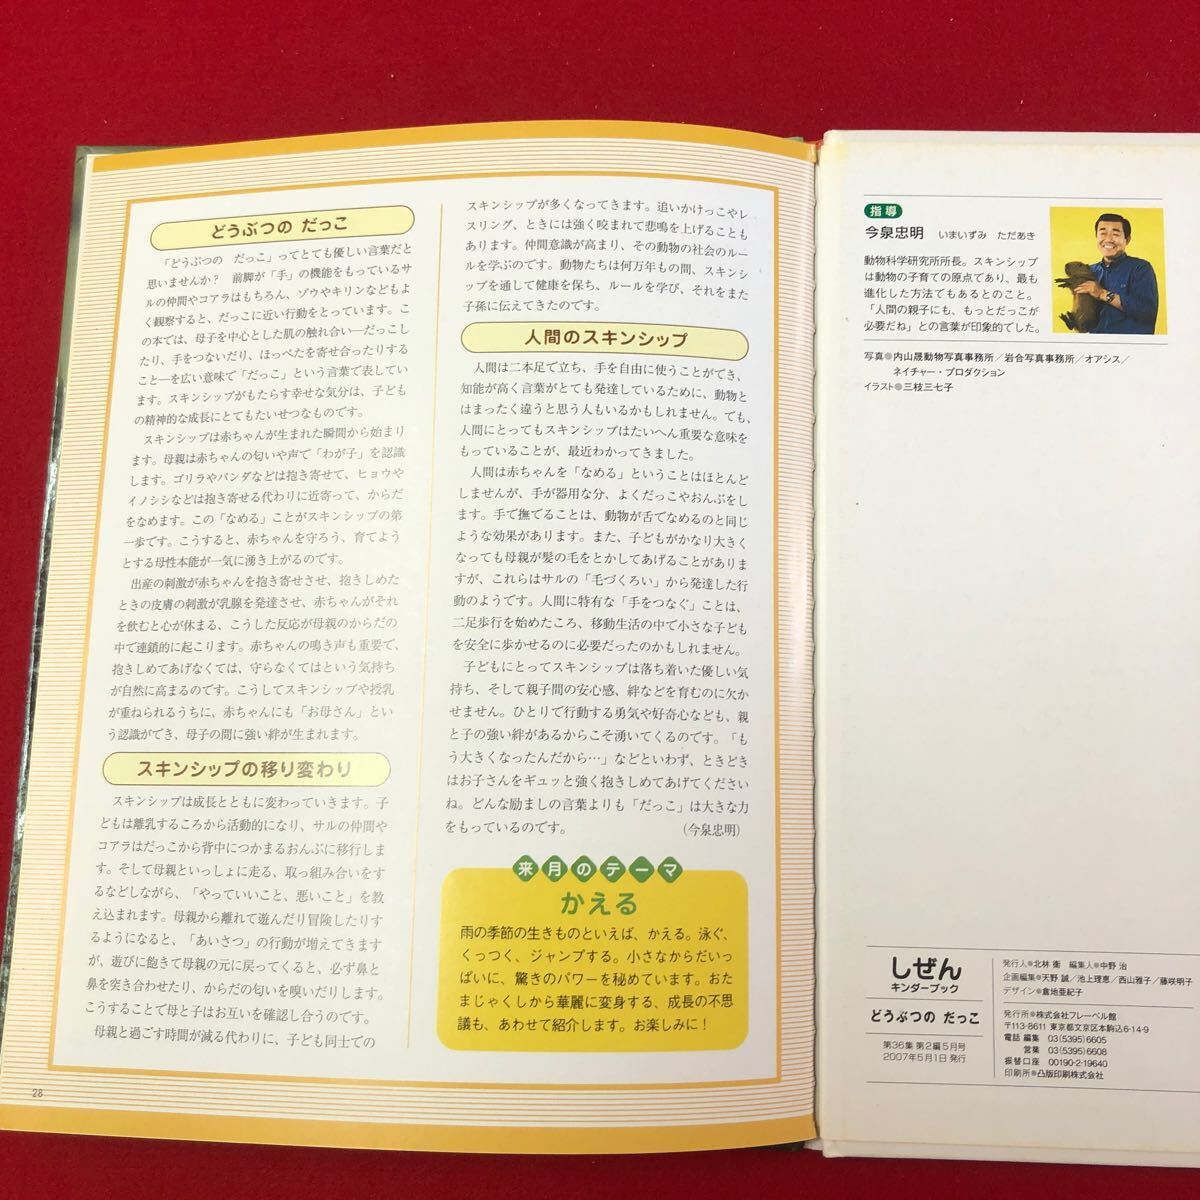 どうぶつの だっこ
「どうぶつの だっこ」ってとても優しい言葉だと
思いませんか? 前脚が「手」の機能をもっているサ
ルの仲間やコアラはもちろん、ゾウやキリンなどもよ
く観察すると、だっこに近い行動をとっています。こ
の本では、母子を中心とした肌の触れ合い―だっこし
たり、手をつないだり、ほっぺたを寄せ合ったりする
こと―を広い意味で「だっこ」という言葉で表してい
ます。スキンシップがもたらす幸せな気分は、子ども
の精神的な成長にとてもたいせつなものです。
スキンシップは赤ちゃんが生まれた瞬間から始まり
ます。母親は赤ちゃんの匂いや声で「わが子」を認識
します。ゴリラやパンダなどは抱き寄せて、ヒョウや
イノシシなどは抱き寄せる代わりに近寄って、からだ
をなめます。この「なめる」ことがスキンシップの第
一歩です。こうすると、赤ちゃんを守ろう、育てよう
とする母性本能が一気に湧き上がるのです。
出産の刺激が赤ちゃんを抱き寄せさせ、抱きしめた
ときの皮膚の刺激が乳腺を発達させ、赤ちゃんがそれ
を飲むと心が休まる、こうした反応が母親のからだの
中で連鎖的に起こります。赤ちゃんの鳴き声も重要で、
抱きしめてあげなくては、守らなくてはという気持ち
が自然に高まるのです。こうしてスキンシップや授乳
が重ねられるうちに、赤ちゃんにも「お母さん」とい
う認識ができ、母子の間に強い絆が生まれます。
スキンシップの移り変わり
スキンシップは成長とともに変わっていきます。子
どもは離乳するころから活動的になり、サルの仲間や
コアラはだっこから背中につかまるおんぶに移行しま
す。そして母親といっしょに走る、取っ組み合いをす
るなどしながら、「やっていいこと、悪いこと」を教
え込まれます。母親から離れて遊んだり冒険したりす
るようになると、「あいさつ」の行動が増えてきます
が、遊びに飽きて母親の元に戻ってくると、必ず鼻と
鼻を突き合わせたり、からだの匂いを嗅いだりします。
こうすることで母と子はお互いを確認し合うのです。
母親と過ごす時間が減る代わりに、子ども同士での
28
スキンシップが多くなってきます。追いかけっこやレ
スリング、ときには強く咬まれて悲鳴を上げることも
あります。仲間意識が高まり、その動物の社会のルー
ルを学ぶのです。動物たちは何万年もの間、スキンシ
ップを通して健康を保ち、ルールを学び、それをまた
子孫に伝えてきたのです。
人間のスキンシップ
人間は二本足で立ち、手を自由に使うことができ、
知能が高く言葉がとても発達しているために、動物と
はまったく違うと思う人もいるかもしれません。でも、
人間にとってもスキンシップはたいへん重要な意味を
もっていることが、最近わかってきました。
人間は赤ちゃんを「なめる」ということはほとんど
しませんが、手が器用な分、よくだっこやおんぶをし
ます。手で撫でることは、動物が舌でなめるのと同じ
ような効果があります。また、子どもがかなり大きく
なっても母親が髪の毛をとかしてあげることがありま
すが、これらはサルの「毛づくろい」から発達した行
動のようです。人間に特有な「手をつなぐ」ことは、
二足歩行を始めたころ、移動生活の中で小さな子ども
を安全に歩かせるのに必要だったのかもしれません。
子どもにとってスキンシップは落ち着いた優しい気
持ち、そして親子間の安心感、絆などを育むのに欠か
せません。ひとりで行動する勇気や好奇心なども、親
と子の強い絆があるからこそ湧いてくるのです。「も
う大きくなったんだから…」などといわず、ときどき
はお子さんをギュッと強く抱きしめてあげてください
ね。どんな励ましの言葉よりも「だっこ」は大きな力
をもっているのです。 (今泉忠明)
来月のテーマ
かえる
雨の季節の生きものといえば、かえる。泳ぐ、
くっつく、ジャンプする。小さなからだいっ
ぱいに、驚きのパワーを秘めています。おた
まじゃくしから華麗に変身する、成長の不思
議も、あわせて紹介します。お楽しみに!
指導
今泉忠明 いまいずみ ただあき
動物科学研究所所長。スキンシップ
は動物の子育ての原点であり、最も
進化した方法でもあるとのこと。
「人間の親子にも、もっとだっこが
必要だね」との言葉が印象的でした。
写真●内山晟動物写真事務所/岩合写真事務所/オアシス/
ネイチャー・プロダクション
イラスト●三枝三七子
しぜん
キンダーブック
どうぶつの だっこ
第36集 第2編5月号
2007年5月1日 発行
発行人●北林 衞 編集人●中野 治
企画編集●天野 誠/池上理恵/西山雅子/藤咲明子
デザイン●倉地亜紀子
発行所●株式会社フレーベル館
〒113-8611 東京都文京区本駒込6-14-9
電話 編集 03(5395)6605
営業 03(5395)6608
振替口座 00190-2-19640
印刷所●凸版印刷株式会社